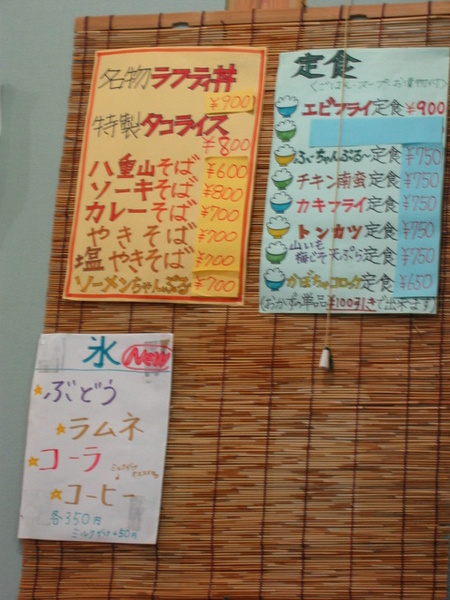 名物ラフティ丼
¥900
特製タコライス
¥800
八重山そば ¥600
ソーキそば ¥800
カレーそば ¥700
やきそば ¥700
塩やきそば ¥700
ソーメンちゃんぷる ¥700
定食
〈ごはん・スープ・お漬物付〉
エビフライ定食 ¥900
ふーちゃんぷる〜定食 ¥750
チキン南蛮定食 ¥750
カキフライ定食 ¥750
トンカツ定食 ¥750
山いも
梅じそ天ぷら定食 ¥750
かぼちゃコロッケ定食 ¥650
(おかずの単品¥100引きで出来ます)
氷 New
ぶどう
ラムネ
コーラ
コーヒー
各350円
ミルクがけ+50円